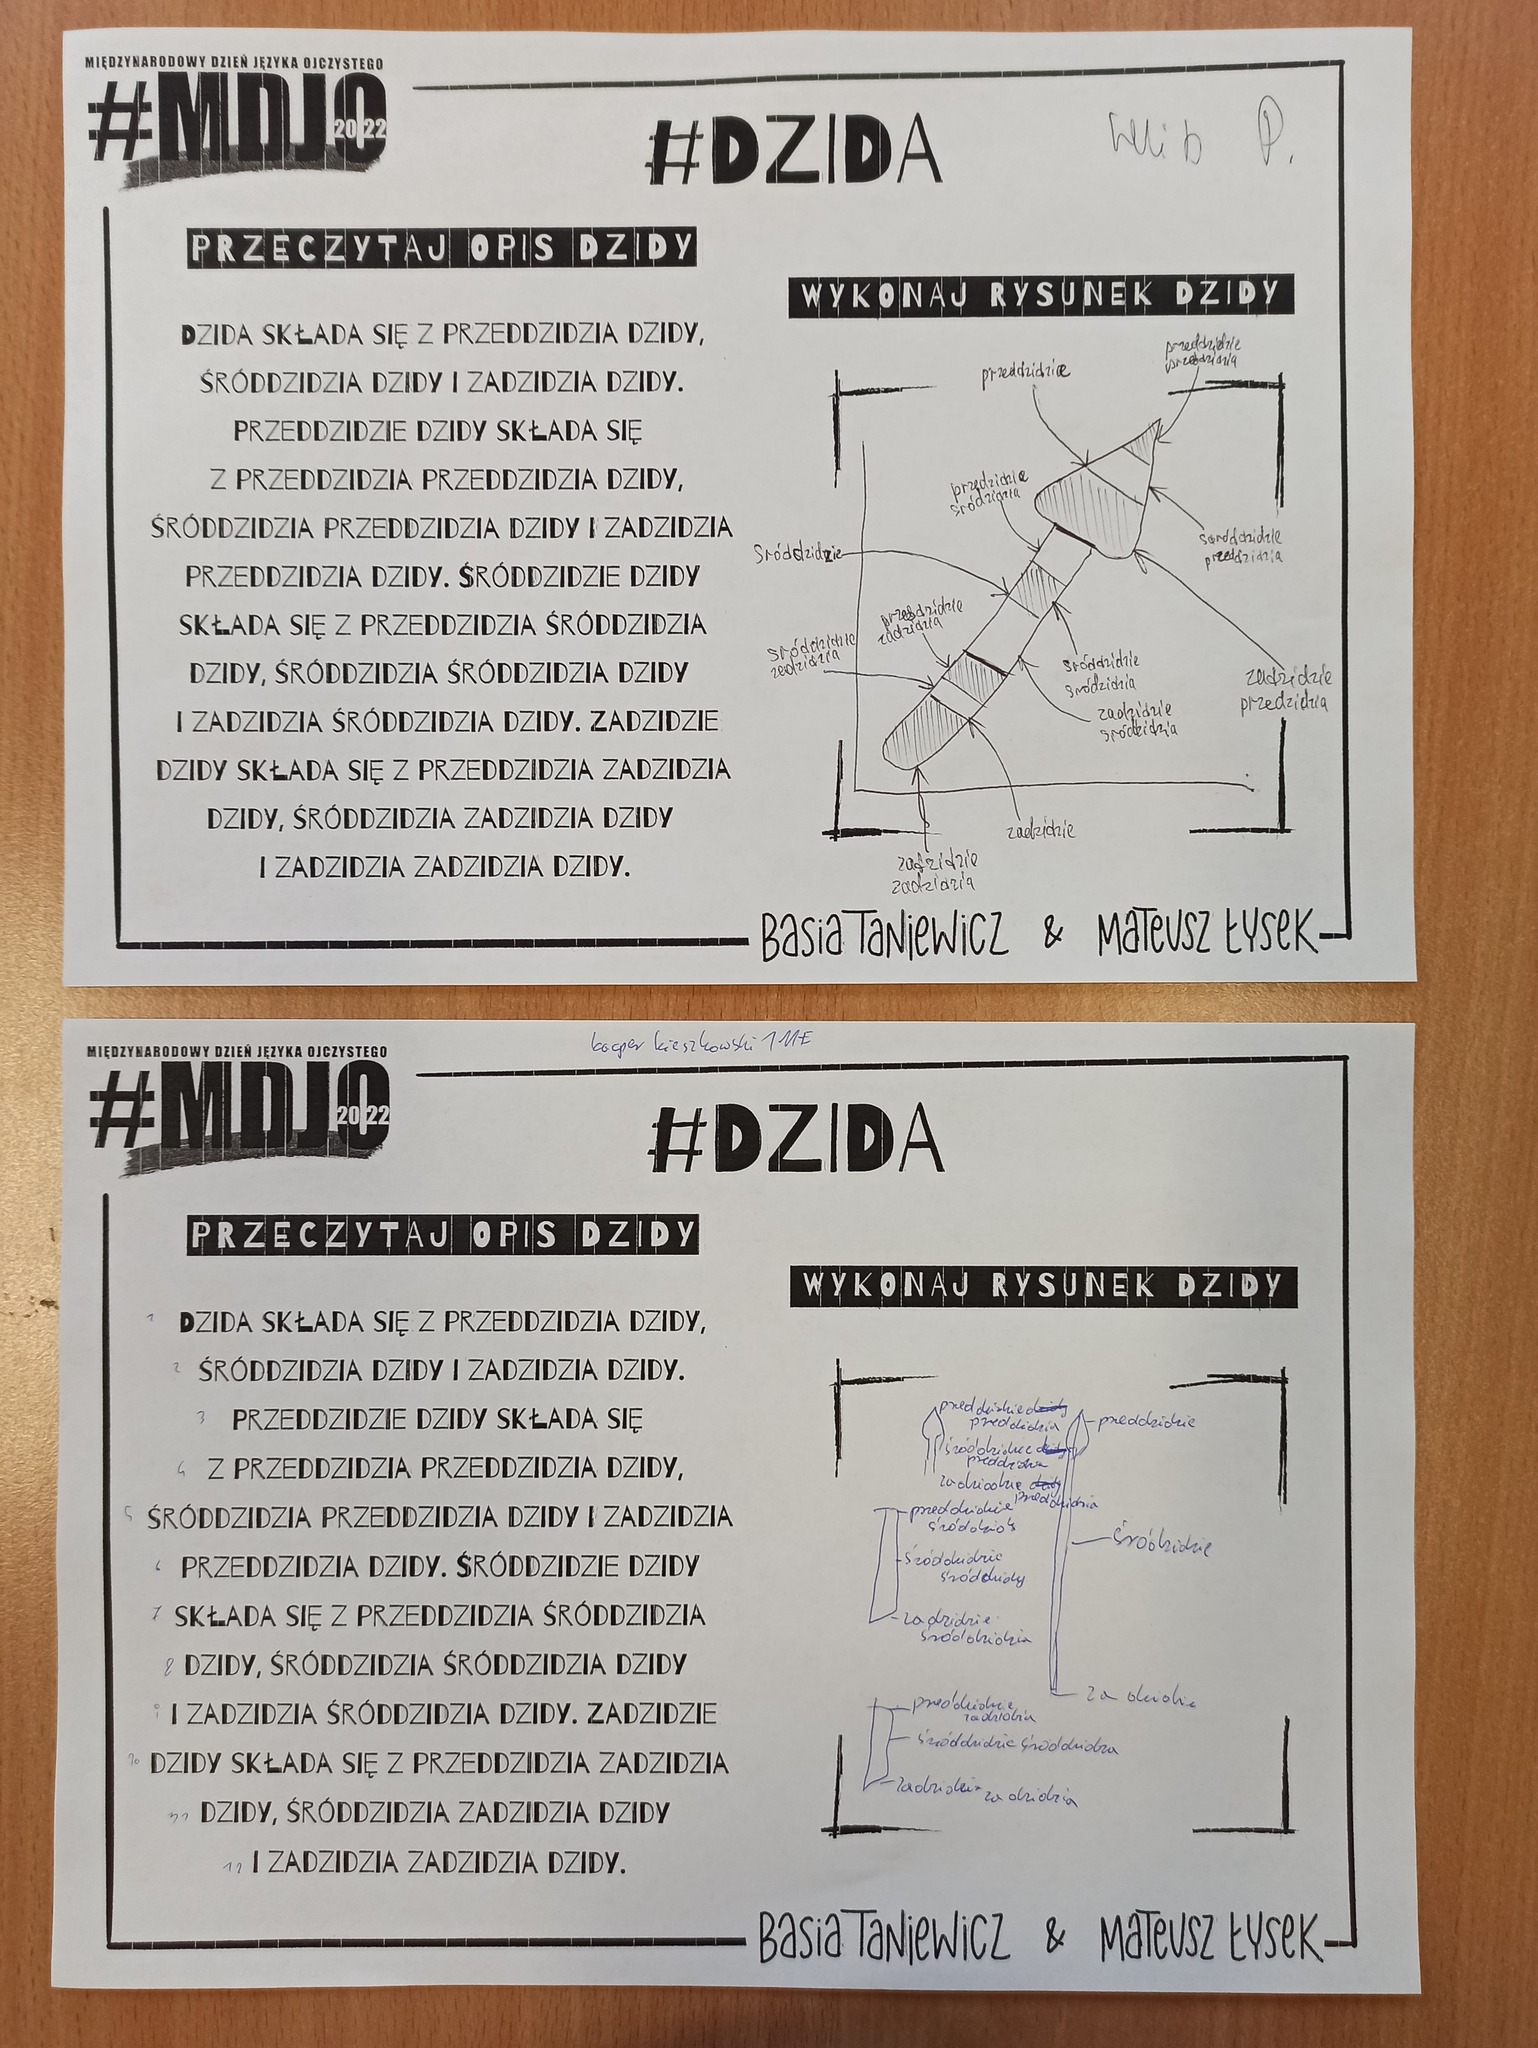 MIĘDZYNARODOWY DZIEŃ JĘZYKA OJCZYSTEGO
#MDJO
2022
#DZIDA
P.
PRZECZYTAJ OPIS DZIDY
DZIDA SKŁADA SIĘ Z PRZEDDZIDZIA DZIDY,
ŚRÓDDZIDZIA DZIDY I ZADZIDZIA DZIDY.
PRZEDDZIDZIE DZIDY SKŁADA SIĘ
Z PRZEDDZIDZIA PRZEDDZIDZIA DZIDY,
ŚRÓDDZIDZIA PRZEDDZIDZIA DZIDY I ZADZIDZIA
PRZEDDZIDZIA DZIDY. ŚRÓDDZIDZIE DZIDY
SKŁADA SIĘ Z PRZEDDZIDZIA ŚRÓDDZIDZIA
DZIDY, ŚRÓDDZIDZIA ŚRÓDDZIDZIA DZIDY
I ZADZIDZIA ŚRÓDDZIDZIA DZIDY. ZADZIDZIE
DZIDY SKŁADA SIĘ Z PRZEDDZIDZIA ZADZIDZIA
DZIDY, ŚRÓDDZIDZIA ZADZIDZIA DZIDY
I ZADZIDZIA ZADZIDZIA DZIDY.
WYKONAJ RYSUNEK DZIDY
przeddzidzie
przeddzidzie
przeddzidzia
śródzidzia
śródzidzie
przeddzidzia
zadzidzia
zadzidzia
śródzidzie
śródzidzia
zadzidzie
śródzidzia
zadzidzie
przedzidzia
zadzidzie
zadzidzie
zadzidzia
BASIA TANIEWICZ & MATEUSZ ŁYSEK
kacper kieszkowski 1ME
MIĘDZYNARODOWY DZIEŃ JĘZYKA OJCZYSTEGO
#MDJO
2022
#DZIDA
PRZECZYTAJ OPIS DZIDY
1 DZIDA SKŁADA SIĘ Z PRZEDDZIDZIA DZIDY,
2 ŚRÓDDZIDZIA DZIDY I ZADZIDZIA DZIDY.
3 PRZEDDZIDZIE DZIDY SKŁADA SIĘ
4 Z PRZEDDZIDZIA PRZEDDZIDZIA DZIDY,
5 ŚRÓDDZIDZIA PRZEDDZIDZIA DZIDY I ZADZIDZIA
6 PRZEDDZIDZIA DZIDY. ŚRÓDDZIDZIE DZIDY
7 SKŁADA SIĘ Z PRZEDDZIDZIA ŚRÓDDZIDZIA
8 DZIDY, ŚRÓDDZIDZIA ŚRÓDDZIDZIA DZIDY
9 I ZADZIDZIA ŚRÓDDZIDZIA DZIDY. ZADZIDZIE
10 DZIDY SKŁADA SIĘ Z PRZEDDZIDZIA ZADZIDZIA
11 DZIDY, ŚRÓDDZIDZIA ZADZIDZIA DZIDY
12 I ZADZIDZIA ZADZIDZIA DZIDY.
WYKONAJ RYSUNEK DZIDY
preddzidzie
zadzidzie
śróddzidzia
zadzidzia
zadzidzia
BASIA TANIEWICZ & MATEUSZ ŁYSEK